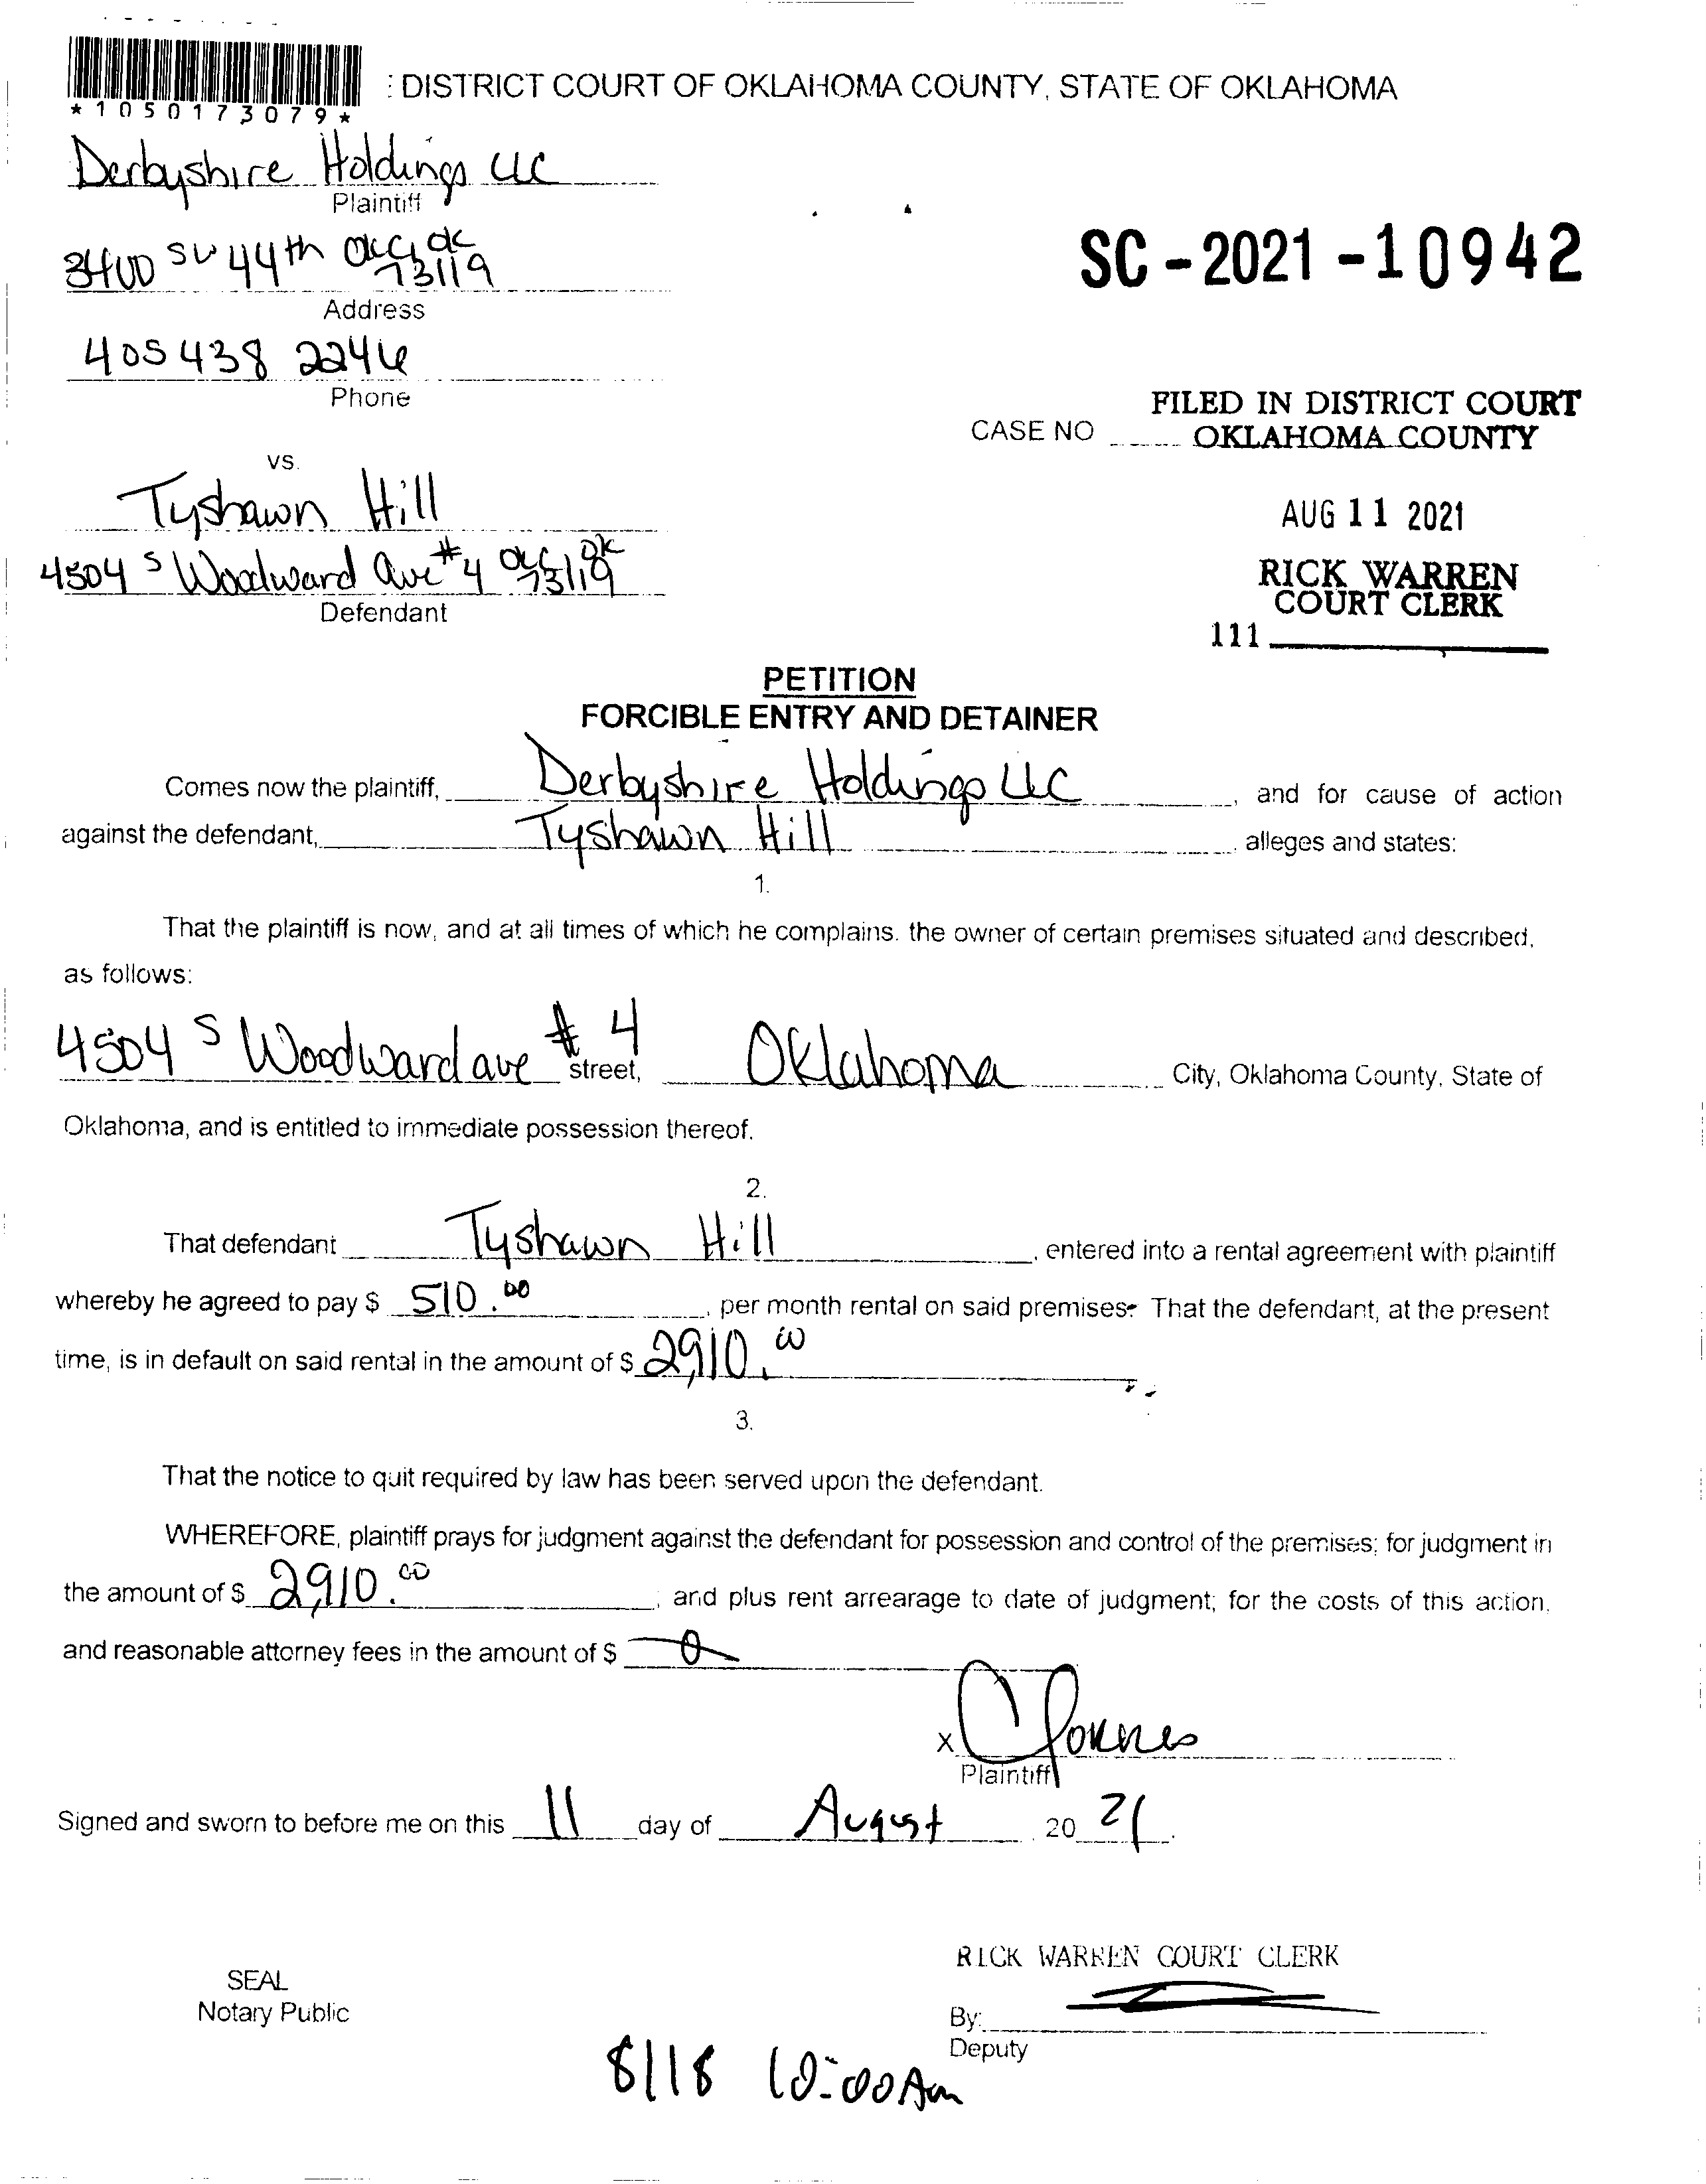 : DISTRICT COURT OF OKLAHOMA COUNTY, STATE OF OKLAHOMA
*1050173079*
Derbyshire Holdings LLC
Plaintiff
3400 SW 44th OKC, OK 73119
Address
405 438 2246
Phone
SC-2021-10942
FILED IN DISTRICT COURT
CASE NO OKLAHOMA COUNTY
vs.
AUG 11 2021
Tyshawn Hill
4504 S Woodward Ave #4 OKC, OK 73119
Defendant
RICK WARREN
COURT CLERK
111
PETITION
FORCIBLE ENTRY AND DETAINER
Comes now the plaintiff, Derbyshire Holdings LLC, and for cause of action
against the defendant, Tyshawn Hill alleges and states:
1.
That the plaintiff is now, and at all times of which he complains, the owner of certain premises situated and described,
as follows:
4504 S Woodward ave # 4 street, Oklahoma City, Oklahoma County, State of
Oklahoma, and is entitled to immediate possession thereof.
2.
That defendant Tyshawn Hill, entered into a rental agreement with plaintiff
whereby he agreed to pay $ 510.00, per month rental on said premises. That the defendant, at the present
time, is in default on said rental in the amount of $ 2,910.00
3.
That the notice to quit required by law has been served upon the defendant.
WHEREFORE, plaintiff prays for judgment against the defendant for possession and control of the premises; for judgment in
the amount of $ 2,910.00, and plus rent arrearage to date of judgment; for the costs of this action,
and reasonable attorney fees in the amount of $ 0
X
Plaintiff
Signed and sworn to before me on this 11 day of August 20 21.
RICK WARREN COURT CLERK
SEAL
Notary Public
By:
Deputy
8/18 10:00 Am